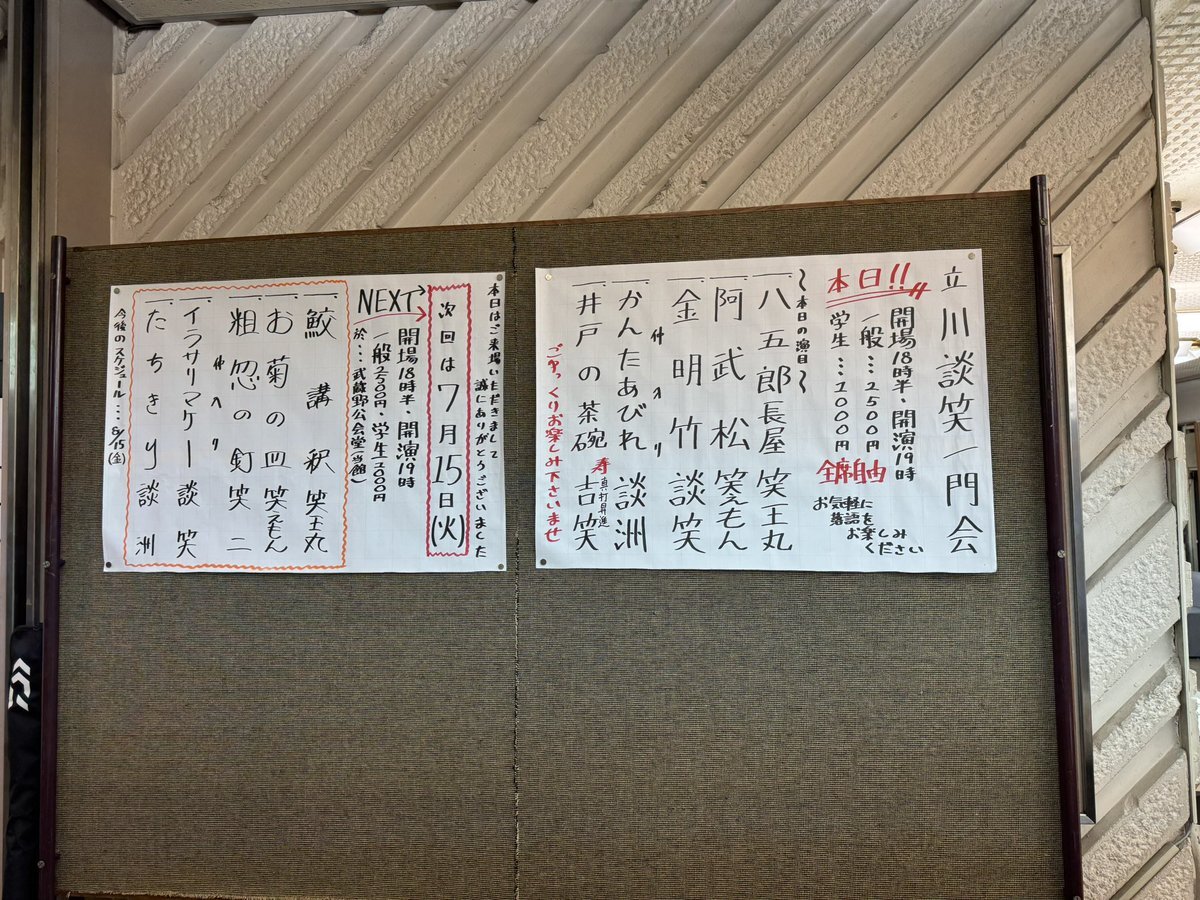 立川談笑一門会
本日!!
開場18時半・開演19時
一般…2500円
学生…2000円
全席自由
お気軽に
落語を
お楽しみ
ください
〜本日の演目〜
一八五郎長屋 笑王丸
一阿武松 笑えもん
一金明竹 談笑
仲入り
一かんたあびれ 談洲
一井戸の茶碗 寿真打昇進 吉笑
ごゆっくりお楽しみ下さいませ
本日はご来場いただきまして
誠にありがとうございました
次回は7月15日(火)
NEXT
開場18時半・開演19時
一般2500円・学生2000円
於…武蔵野公会堂(当館)
一鮫講釈 笑王丸
一お菊の皿 笑えもん
一粗忽の釘 笑二
仲入り
一イラサリマケー 談笑
一たちきり 談洲
今後のスケジュール…8/15(金)